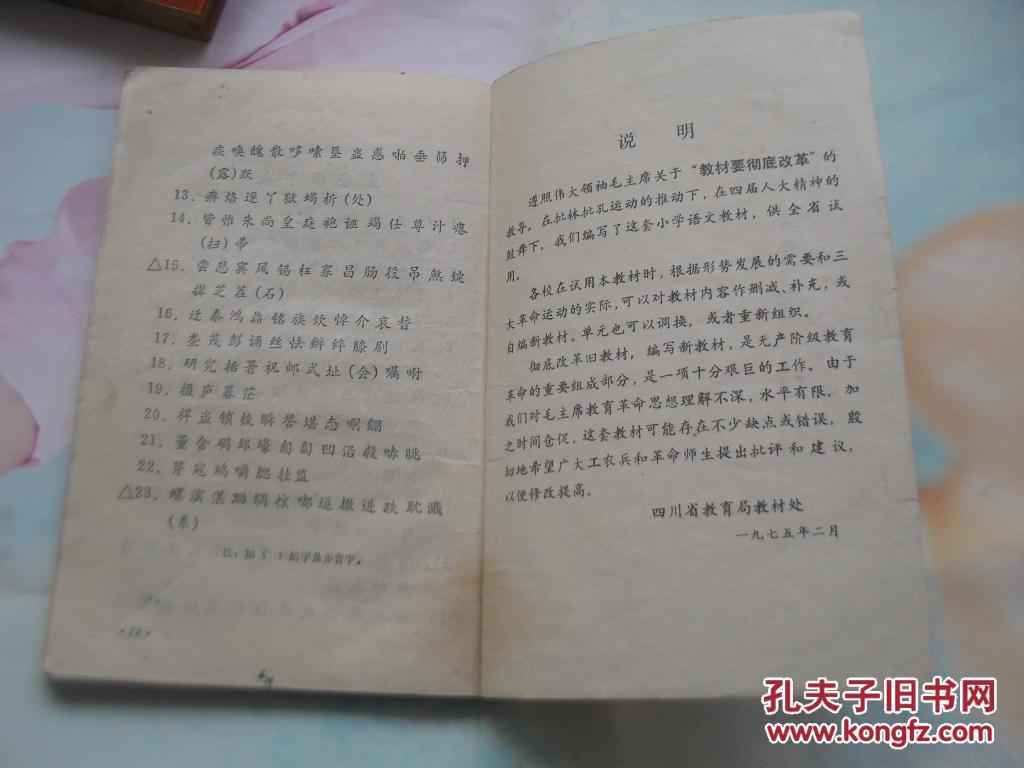 疾唤魄散哆嗦垦盗惑啪垂筛押
(露)跃
13. 痹烙逐丫狱蝎析(处)
14. 皆惟朱尚皇庭袍诬竭仕尊汁瘪
(扫)带
△15. 尝悲宾风锡枉寡昌肠役吊煞绽
挥芝茬(石)
16. 迁泰鸿鼎铭族炊悼介哀替
17. 垄茂彭诵丝怯辫绊膝刷
18. 研究括署祝邮式址(会)嘱咐
19. 摄庐暮茫
20. 捍盗锁梭瞬誉堪态唰翩
21. 董含碉邱壕匍匐凹沿毅咏眺
22. 芽寇鸠嚼腮拄监
△23. 蝶滨湛勋绸棕嘟逗撒迸跌耽溅
(系)
注：加( )的字是多音字。
说 明
遵照伟大领袖毛主席关于“教材要彻底改革”的
教导，在批林批孔运动的推动下，在四届人大精神的
鼓舞下，我们编写了这套小学语文教材，供全省试
用。
各校在试用本教材时，根据形势发展的需要和三
大革命运动的实际，可以对教材内容作删减、补充，或
自编新教材。单元也可以调换，或者重新组织。
彻底改革旧教材，编写新教材，是无产阶级教育
革命的重要组成部分，是一项十分艰巨的工作。由于
我们对毛主席教育革命思想理解不深，水平有限，加
之时间仓促，这套教材可能存在不少缺点或错误，殷
切地希望广大工农兵和革命师生提出批评和建议，
以便修改提高。
四川省教育局教材处
一九七五年二月
孔夫子旧书网
www.kongfz.com